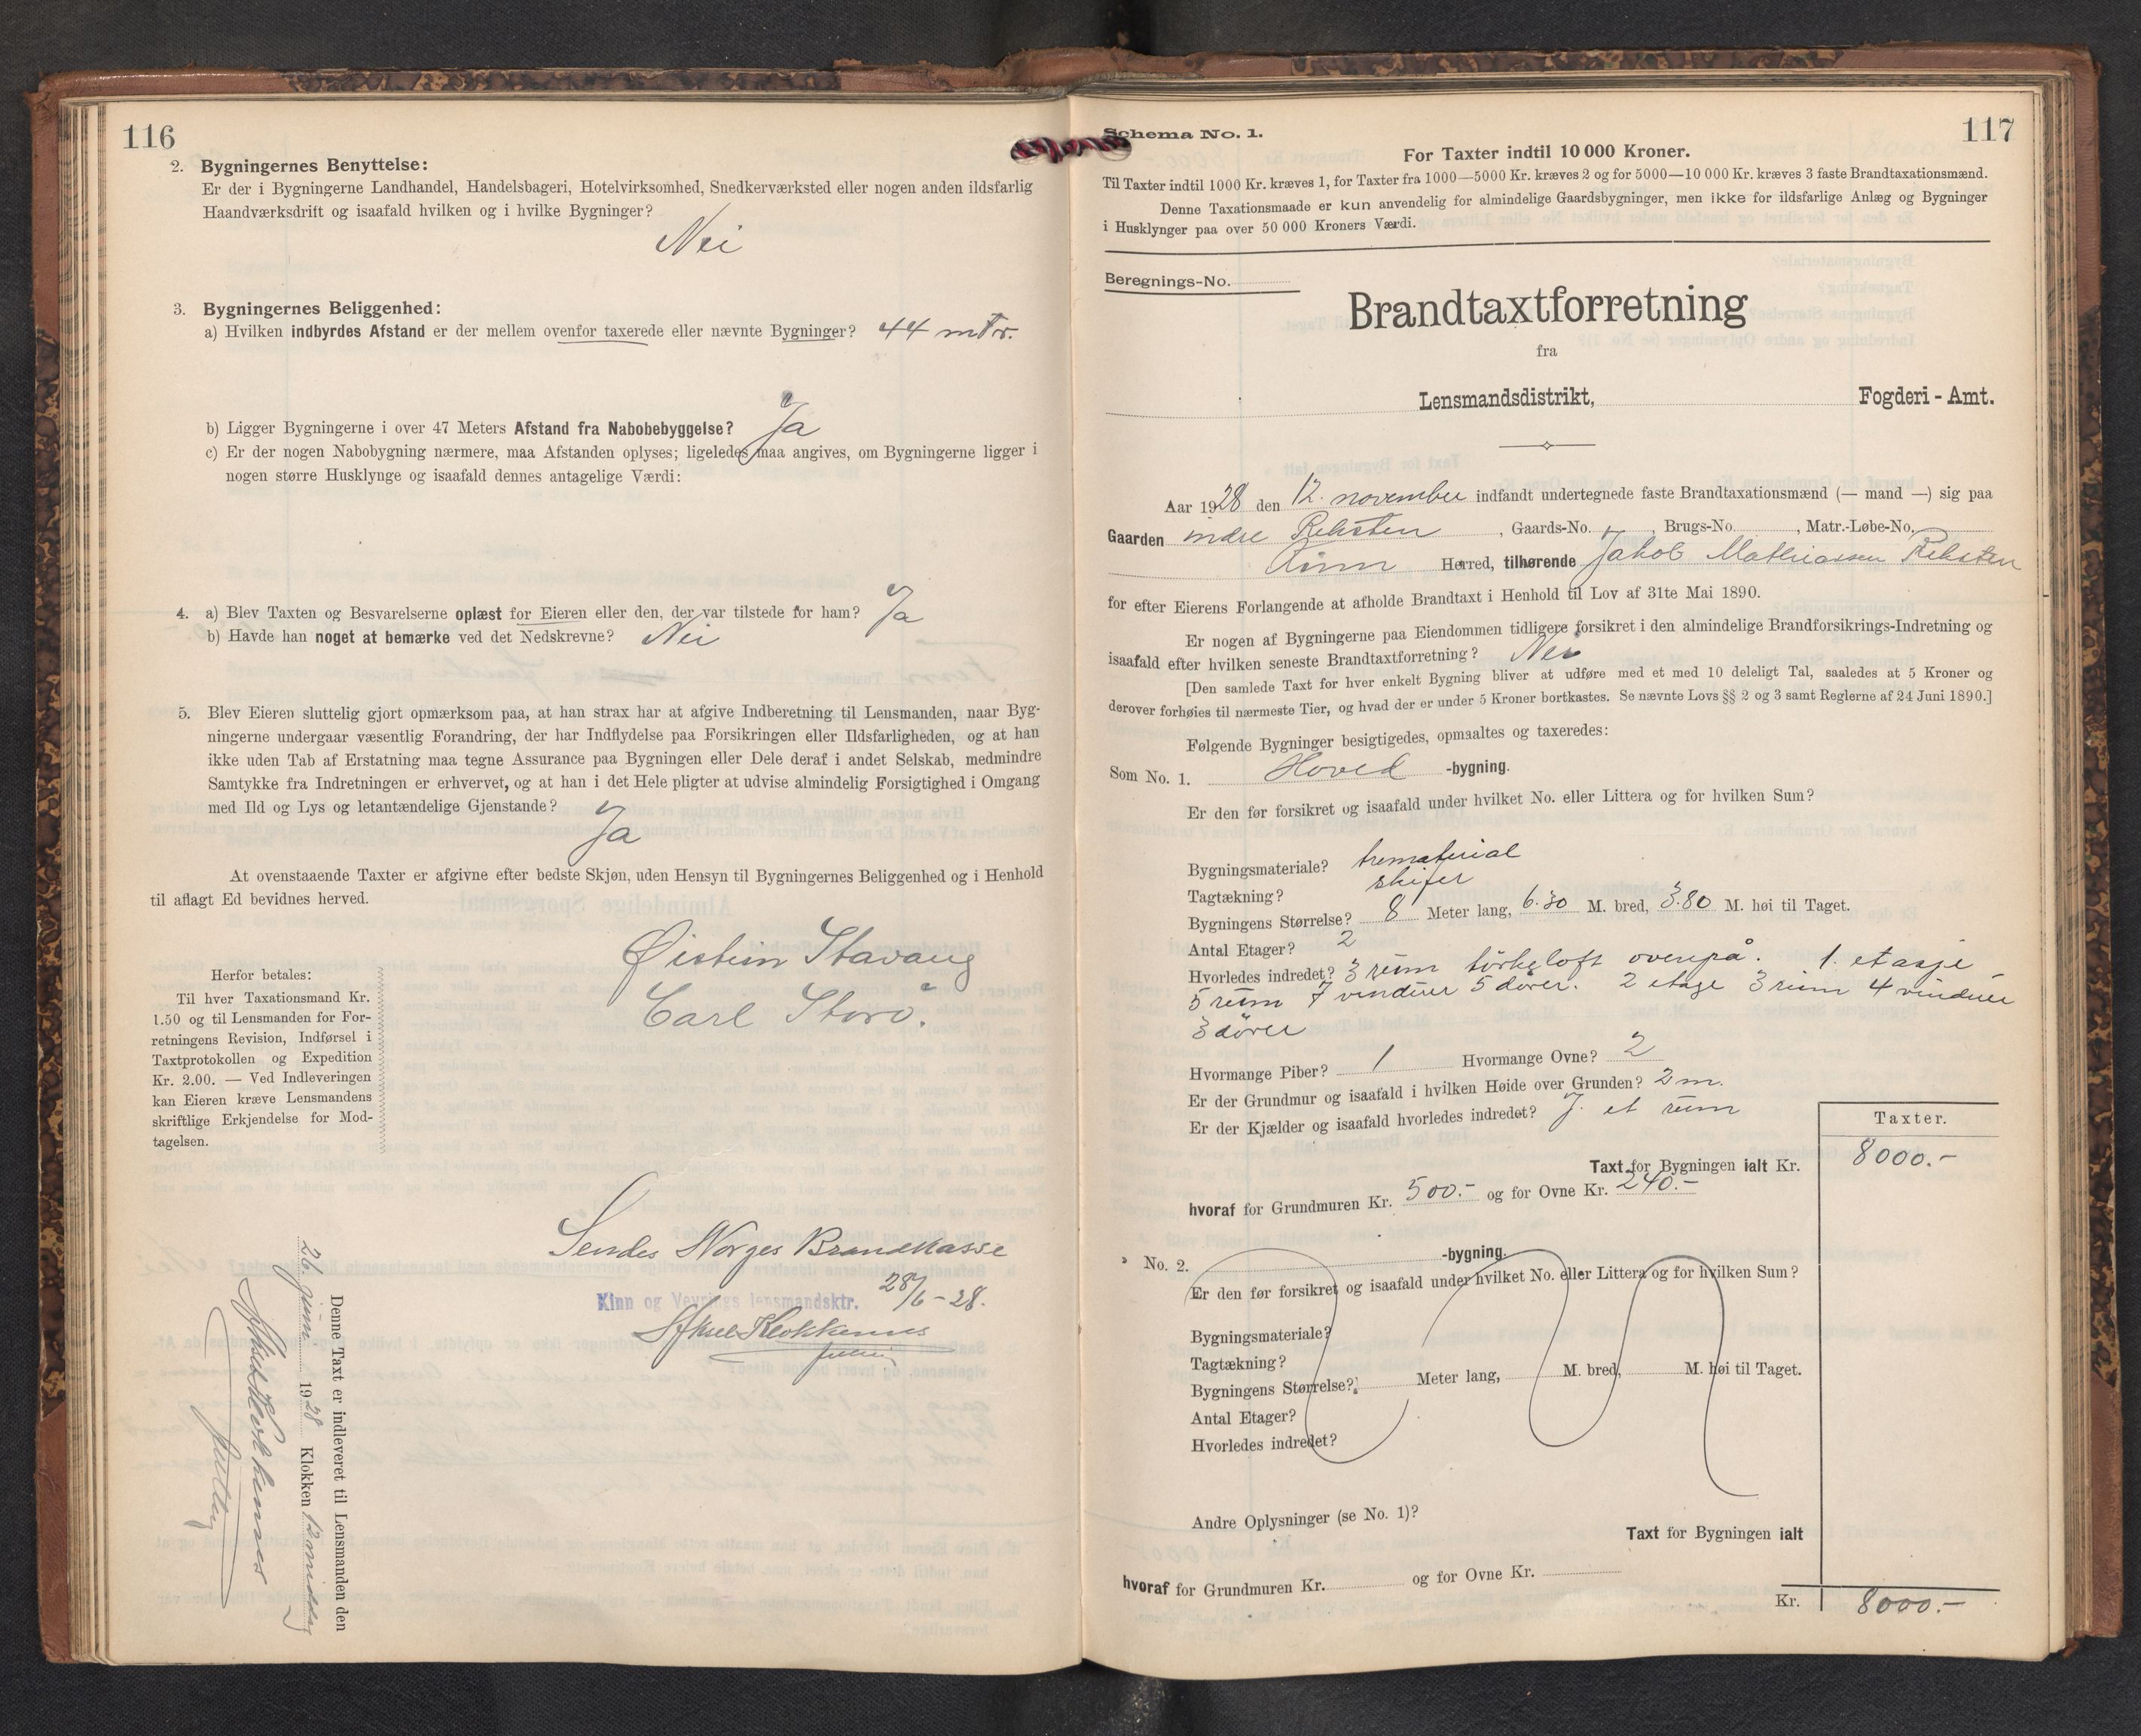 116
2. Bygningernes Benyttelse:
Er der i Bygningerne Landhandel, Handelsbageri, Hotelvirksomhed, Snedkerværksted eller nogen anden ildsfarlig
Haandværksdrift og isaafald hvilken og i hvilke Bygninger?
Nei
3. Bygningernes Beliggenhed:
a) Hvilken indbyrdes Afstand er der mellem ovenfor taxerede eller nævnte Bygninger? 44 mtr.
b) Ligger Bygningerne i over 47 Meters Afstand fra Nabobebyggelse? Ja
c) Er der nogen Nabobygning nærmere, maa Afstanden oplyses; ligeledes maa angives, om Bygningerne ligger i
nogen større Husklynge og isaafald dennes antagelige Værdi:
4. a) Blev Taxten og Besvarelserne oplæst for Eieren eller den, der var tilstede for ham? Ja
b) Havde han noget at bemærke ved det Nedskrevne? Nei
5. Blev Eieren sluttelig gjort opmærksom paa, at han strax har at afgive Indberetning til Lensmanden, naar Byg-
ningerne undergaar væsentlig Forandring, der har Indflydelse paa Forsikringen eller Ildsfarligheden, og at han
ikke uden Tab af Erstatning maa tegne Assurance paa Bygningen eller Dele deraf i andet Selskab, medmindre
Samtykke fra Indretningen er erhvervet, og at han i det Hele pligter at udvise almindelig Forsigtighed i Omgang
med Ild og Lys og letantændelige Gjenstande?
Ja
At ovenstaaende Taxter er afgivne efter bedste Skjøn, uden Hensyn til Bygningernes Beliggenhed og i Henhold
til aflagt Ed bevidnes herved.
Øistein Stavang
Carl Storø.
Herfor betales:
Til hver Taxationsmand Kr.
1.50 og til Lensmanden for For-
retningens Revision, Indførsel i
Taxtprotokollen og Expedition
Kr. 2.00. — Ved Indleveringen
kan Eieren kræve Lensmandens
skriftlige Erkjendelse for Mod-
tagelsen.
Sendes Norges Brandkasse
28/6-28.
Kinn og Vevrings lensmandsktr.
Denne Taxt er indleveret til Lensmanden den
26 juni 1928 Klokken 12 middag
117
Schema No. 1.
For Taxter indtil 10 000 Kroner.
Til Taxter indtil 1000 Kr. kræves 1, for Taxter fra 1000—5000 Kr. kræves 2 og for 5000—10 000 Kr. kræves 3 faste Brandtaxationsmænd.
Denne Taxationsmaade er kun anvendelig for almindelige Gaardsbygninger, men ikke for ildsfarlige Anlæg og Bygninger
i Husklynger paa over 50 000 Kroners Værdi.
Beregnings-No.
Brandtaxtforretning
fra
Lensmandsdistrikt, Fogderi - Amt.
Aar 1928 den 12. november indfandt undertegnede faste Brandtaxationsmænd (— mand —) sig paa
Gaarden indre Reksten, Gaards-No. , Brugs-No. , Matr.-Løbe-No.
Kinn Herred, tilhørende Jakob Mathiassen Reksten
for efter Eierens Forlangende at afholde Brandtaxt i Henhold til Lov af 31te Mai 1890.
Er nogen af Bygningerne paa Eiendommen tidligere forsikret i den almindelige Brandforsikrings-Indretning og
isaafald efter hvilken seneste Brandtaxtforretning? Nei
[Den samlede Taxt for hver enkelt Bygning bliver at udføre med et med 10 deleligt Tal, saaledes at 5 Kroner og
derover forhøies til nærmeste Tier, og hvad der er under 5 Kroner bortkastes. Se nævnte Lovs §§ 2 og 3 samt Reglerne af 24 Juni 1890.]
Følgende Bygninger besigtigedes, opmaaltes og taxeredes:
Som No. 1. Hoved -bygning.
Er den før forsikret og isaafald under hvilket No. eller Littera og for hvilken Sum?
Bygningsmateriale? trematerial
Tagtækning? skifer
Bygningens Størrelse? 8 Meter lang, 6.30 M. bred, 3.80 M. høi til Taget.
Antal Etager? 2
Hvorledes indredet? 3 rum törkeloft overpå. 1. etasje
5 rum 7 vinduer 5 dører. 2 etage 3 rum 4 vinduer
3 dører
Hvormange Piber? 1 Hvormange Ovne? 2
Er der Grundmur og isaafald i hvilken Høide over Grunden? 2 m.
Er der Kjælder og isaafald hvorledes indredet? J. et rum
Taxter.
Taxt for Bygningen ialt Kr. 8000.-
hvoraf for Grundmuren Kr. 500.- og for Ovne Kr. 240.-
" No. 2. -bygning.
Er den før forsikret og isaafald under hvilket No. eller Littera og for hvilken Sum?
Bygningsmateriale?
Tagtækning?
Bygningens Størrelse? Meter lang, M. bred, M. høi til Taget.
Antal Etager?
Hvorledes indredet?
Andre Oplysninger (se No. 1)?
Taxt for Bygningen ialt
hvoraf for Grundmuren Kr. og for Ovne Kr.
Kr. 8000.-